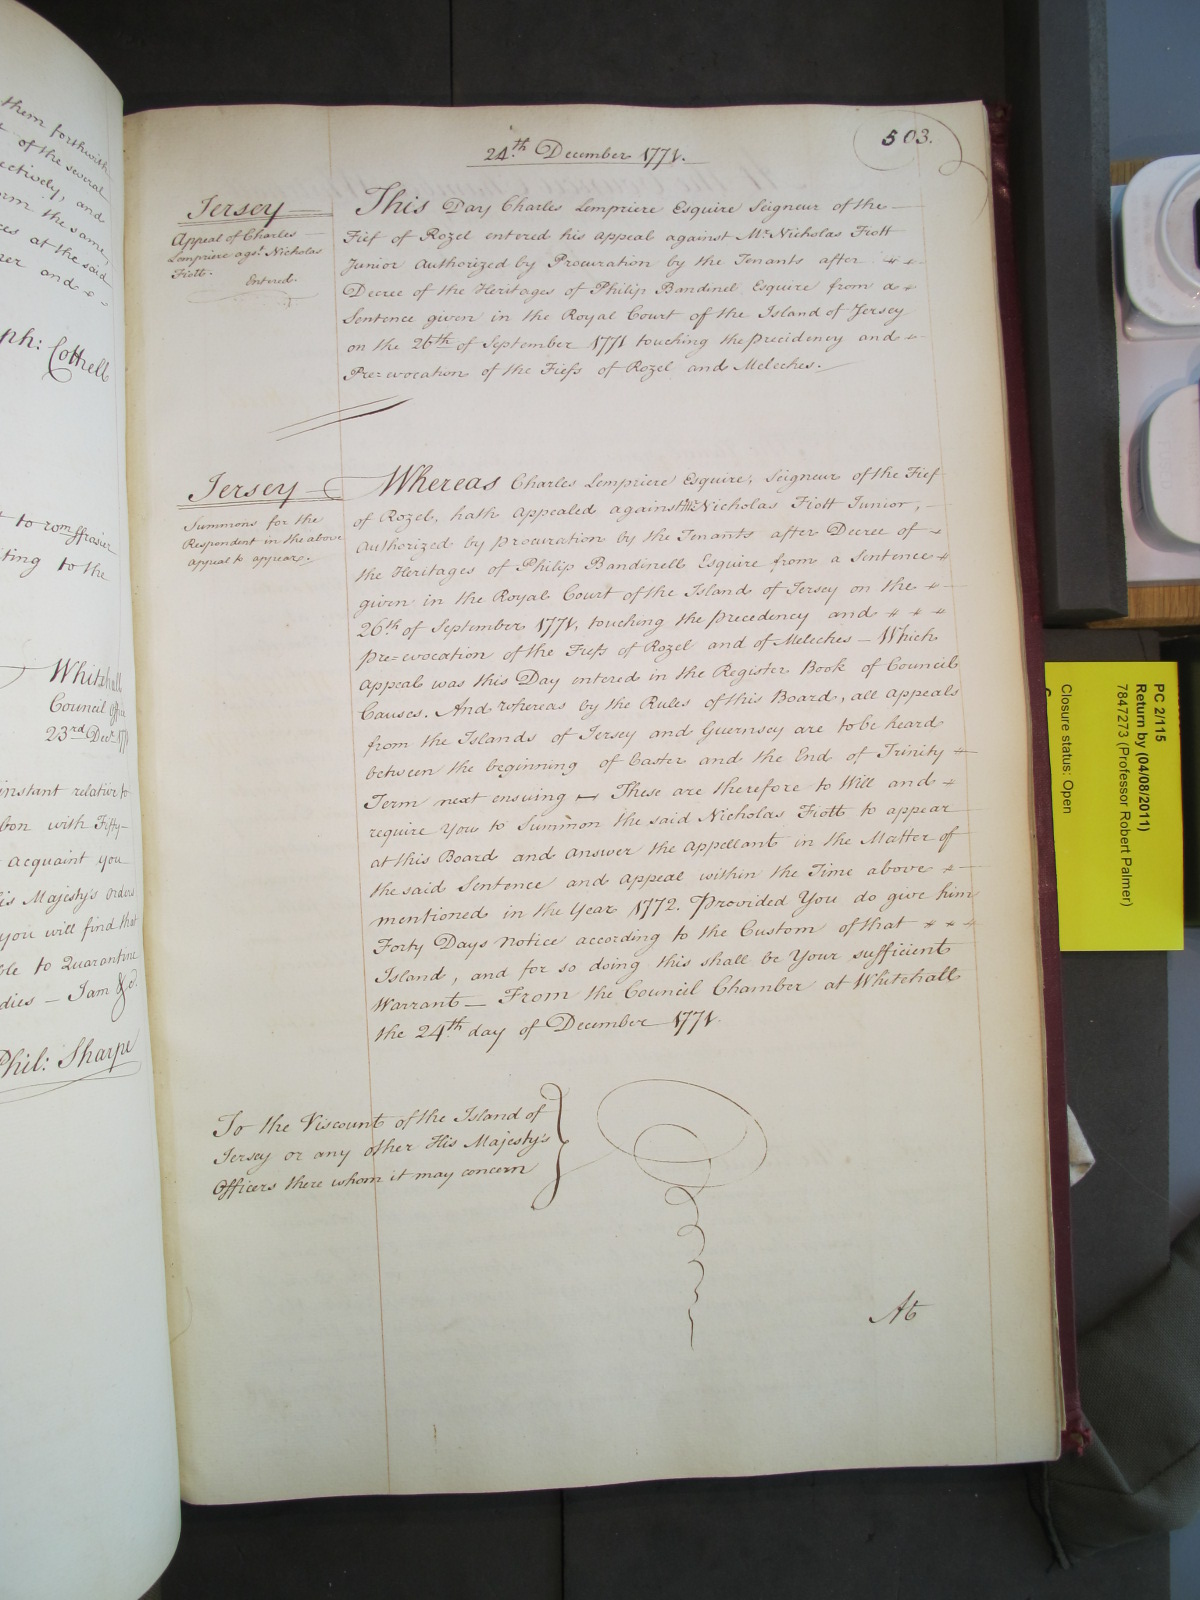 them forthwith
of the several
ectively, and
orm the same,
ces at the said
er and
ph: Cottrell
ting to the
Whitehall
Council Office
23rd Decr. 1771
instant relative to
bon with Fifty-
acquaint you
is Majesty's orders
you will find that
ble to Quarantine
dies — I am &c.
Phil: Sharpe
503.
24th December 1771.
Jersey
Appeal of Charles
Lempriere agst. Nicholas
Fiott.
Entered.
This Day Charles Lempriere Esquire Seigneur of the
Fief of Rozel entered his Appeal against Mr. Nicholas Fiott
Junior Authorized by Procuration by the Tenants after
Decree of the Heritages of Philip Bandinel Esquire from a
Sentence given in the Royal Court of the Island of Jersey
on the 26th of September 1771 touching the Precidency and
Pre=evocation of the Fiefs of Rozel and Meleches.
Jersey
Summons for the
Respondent in the above
appeal to appear.
Whereas Charles Lempriere Esquire, Seigneur of the Fief
of Rozel, hath Appealed against Mr. Nicholas Fiott Junior,
Authorized by procuration by the Tenants after Decree of
the Heritages of Philip Bandinell Esquire from a Sentence
given in the Royal Court of the Island of Jersey on the
26th of September 1771, touching the Precedency and
Pre=evocation of the Fiefs of Rozel and of Meleches — Which
Appeal was this Day entered in the Register Book of Council
Causes. And whereas by the Rules of this Board, all Appeals
from the Islands of Jersey and Guernsey are to be heard
between the beginning of Easter and the End of Trinity
Term next ensuing — These are therefore to Will and
require You to Summon the said Nicholas Fiott to appear
at this Board and answer the Appellant in the Matter of
the said Sentence and Appeal within the Time above
mentioned in the Year 1772. Provided You do give him
Forty Days Notice according to the Custom of that
Island, and for so doing this shall be Your sufficient
Warrant — From the Council Chamber at Whitehall
the 24th day of December 1771.
To the Viscount of the Island of
Jersey or any other His Majesty's
Officers there whom it may concern
At
PC 2/115
Return by (04/08/2011)
7847273 (Professor Robert Palmer)
Closure status: Open